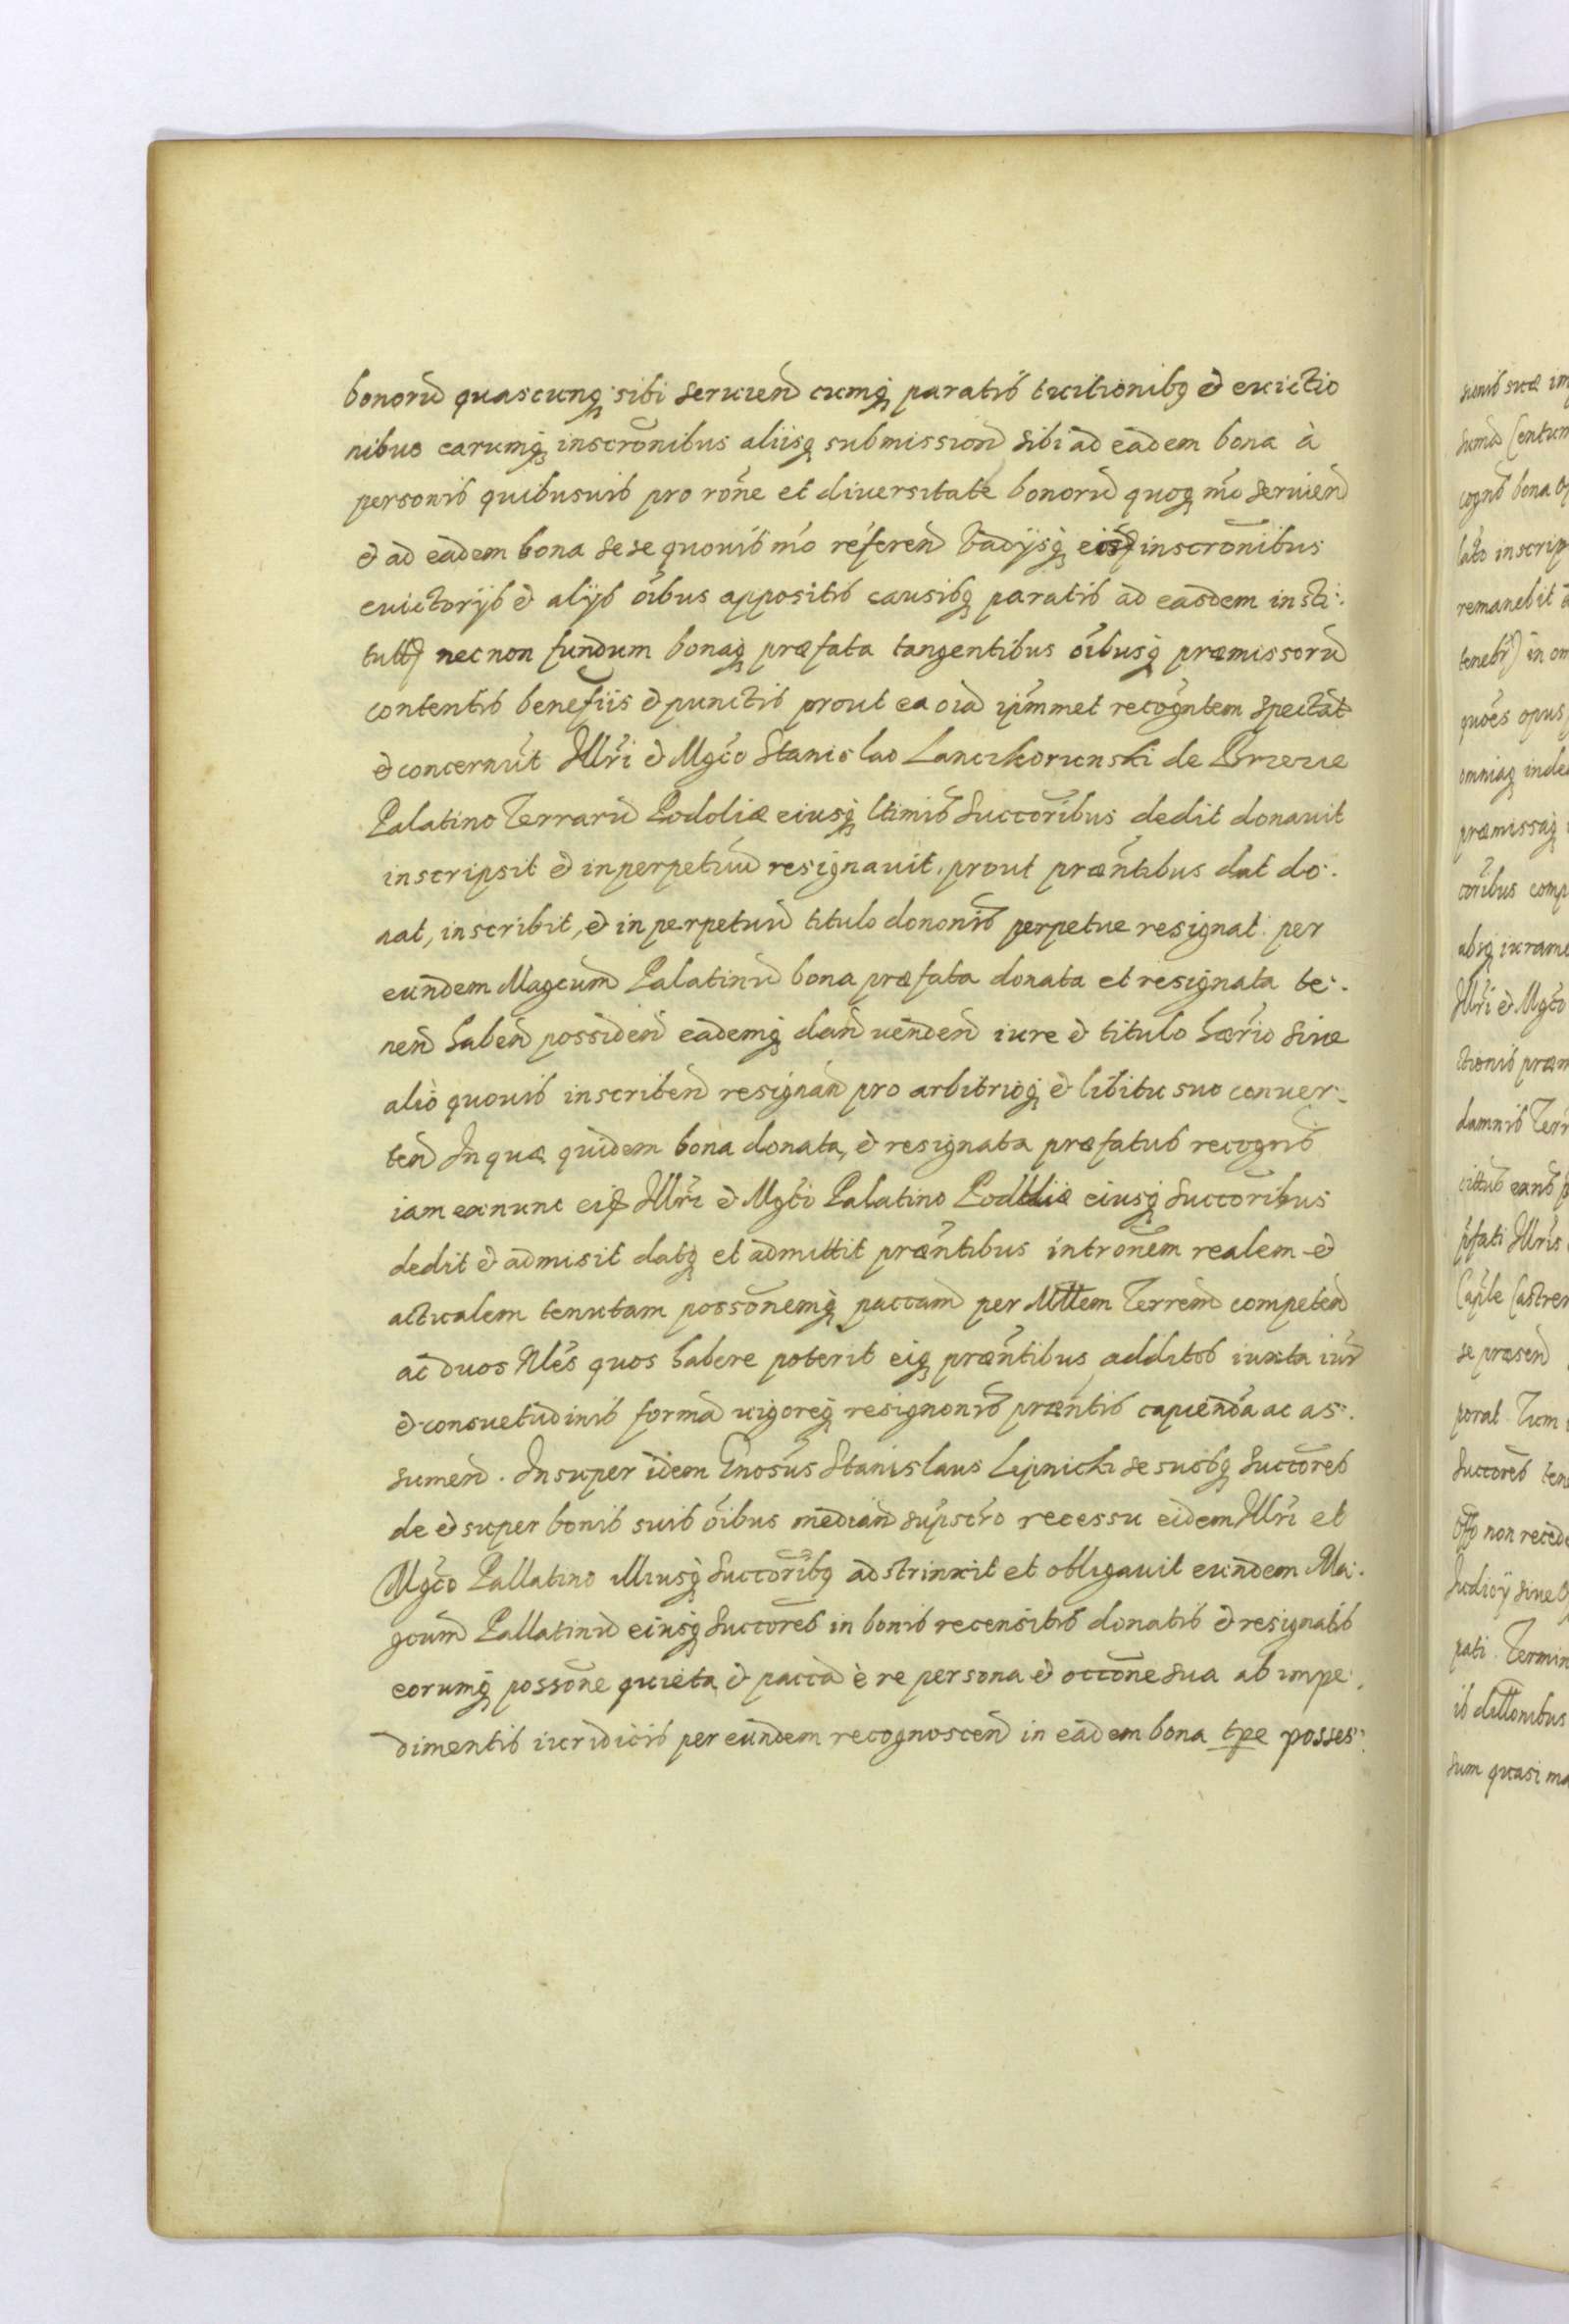 bonorũ quascunq; sibi seruien cumq; paratis tuitionibq; & euictio
nibus earumq; inscrōnibus aliisq; submission sibi ad eadem bona à
personis quibusuis pro rōne et diuersitate bonorũ quoq; mō seruien
& ad eadem bona sese quouis mō referen Vadijsq; inscrōnibus
euictorijs & alijs oībus appositis causisq; paratis ad easdem insti:
nec non fundum bonaq; præfata tangentibus oībusq; præmissorũ
contentis benefiis & punctis prout ea oīa ipīmmet recogntem spectāt
& concernūt Illri & Mgco Stanislao Lanczkorunski de Brzezie
Palatino Terrarũ Podoliæ eiusq; ltimis Succorībus dedit donauit
inscripsit & inperpetuũ resignauit, prout præntibus dat do:
nat, inscribit, & in perpetuũ titulo dononis perpetue resignat per
eundem Magcum Palatinũ bona præfata donata et resignata te:
nen haben possiden eademq; dan uenden iure & titulo hærio siue
alio quouis inscriben resignan pro arbitrioq; & libitu suo conuer:
ten In quæ quidem bona donata, & resignata præfatus recogns
iam ex nunc Illri & Mgco Palatino Podoliæ eiusq; Succorībus
dedit & admisit datq; et admittit præntibus intronem realem &
actualem tenutam possonemq; paccam per Mttem Terren competen
ac duos Nles quos habere poterit eiq; præntibus additos iuxta iur
& consuetudinis formã uigoreq; resignonis præntis capienda ac as:
sumen. Insuper idem Gnosus Stanislaus Lipnicki se suosq; Succores
de & super bonis suis oībus median supscro recessu eidem Illri et
Mgco Pallatino illiusq; Succorībq; adstrinxit et obligauit eundem Ma:
gcum Pallatinũ eiusq; Succores in bonis recensitis donatis & resignatis
eorumq; possone quieta & pacca è re persona & occone sua ab impe:
dimentis iuridicis per eundem recognoscen in eadem bona tpe posses: